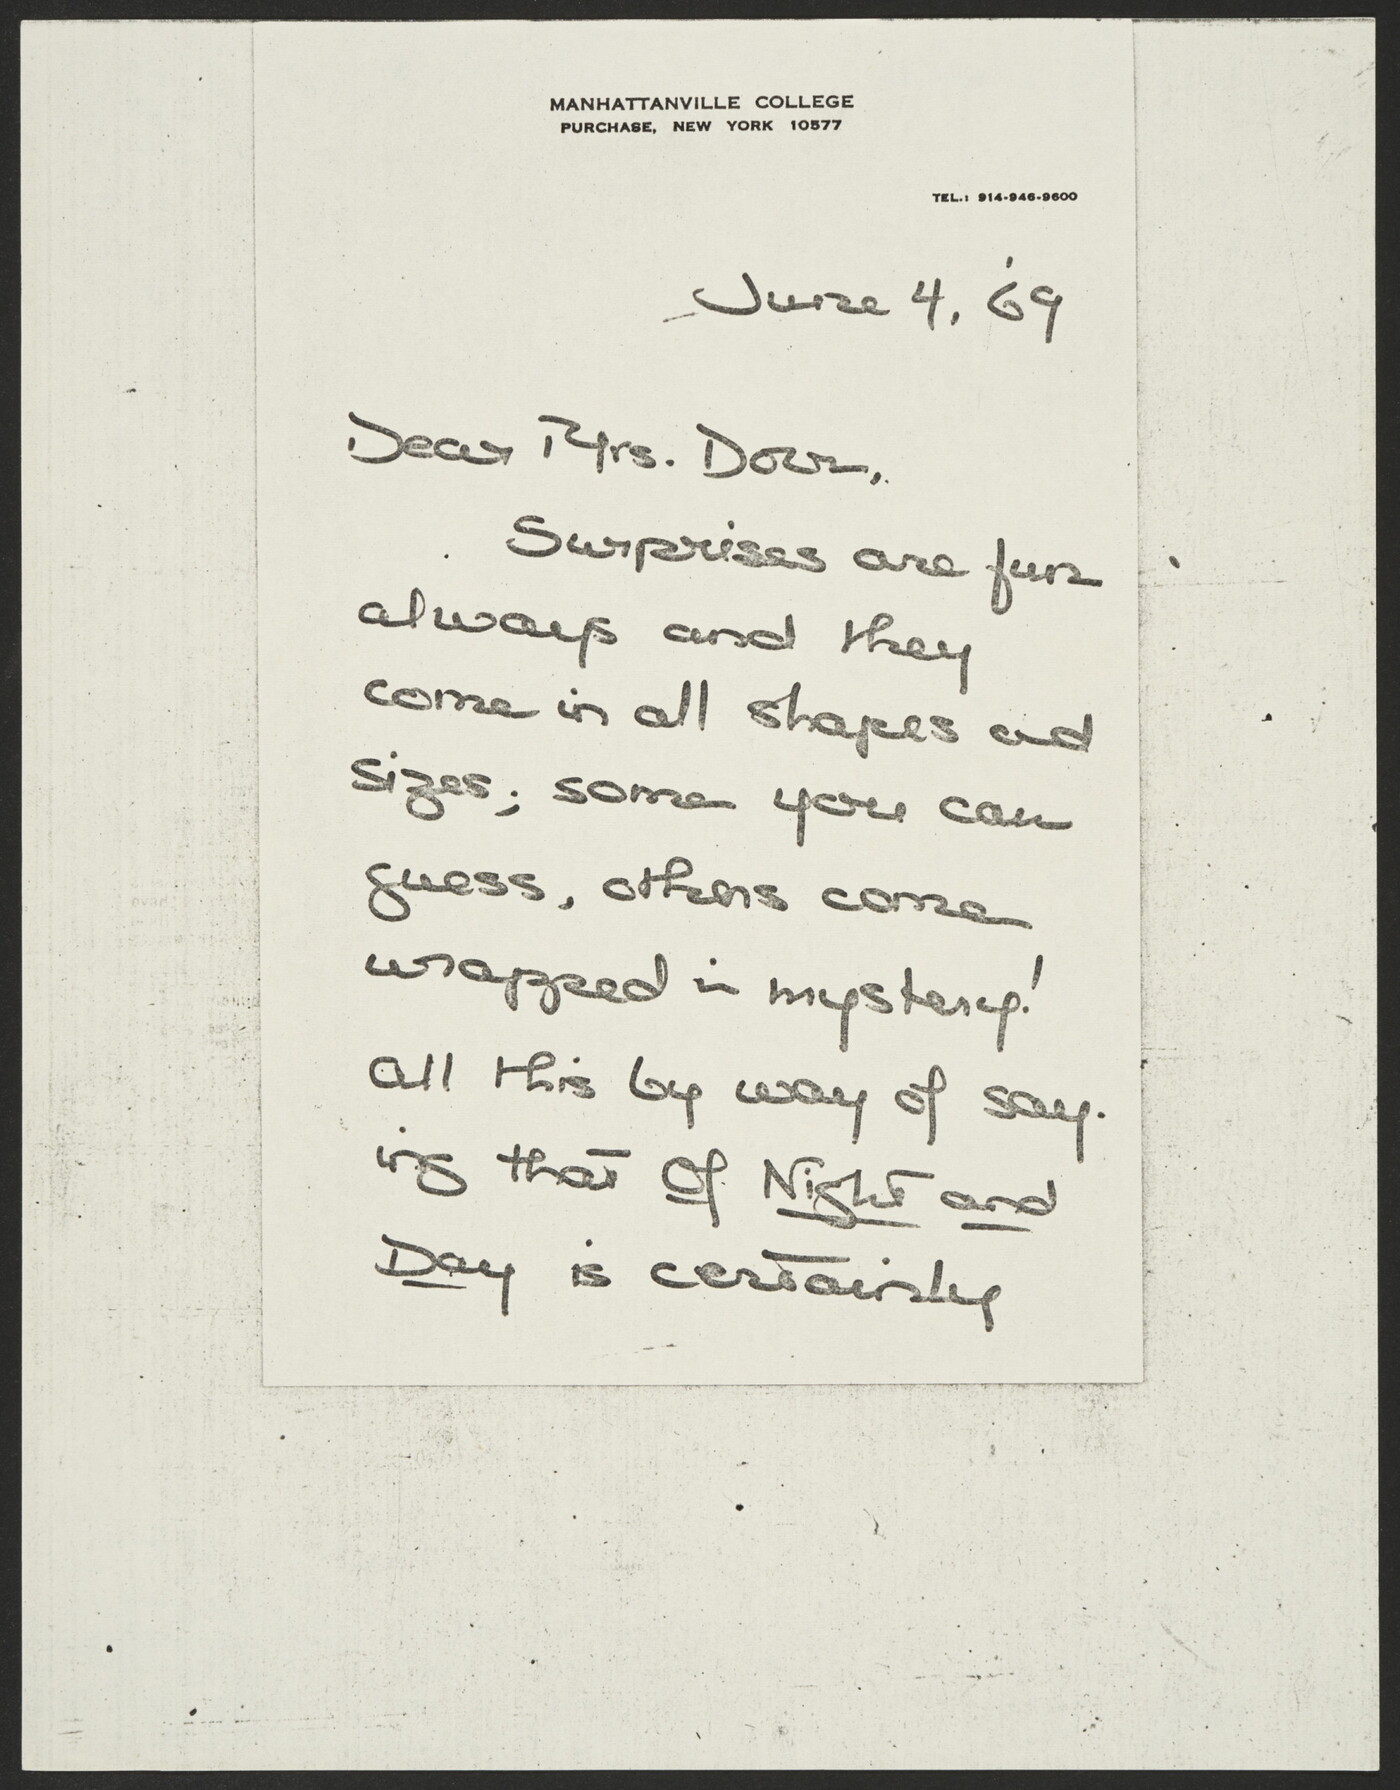 MANHATTANVILLE COLLEGE
PURCHASE, NEW YORK 10577
TEL.: 914-946-9600
June 4, '69
Dear Mrs. Dorr,
Surprises are fun
always and they
come in all shapes and
sizes; some you can
guess, others come
wrapped in mystery!
All this by way of say-
ing that Of Night and
Day is certainly